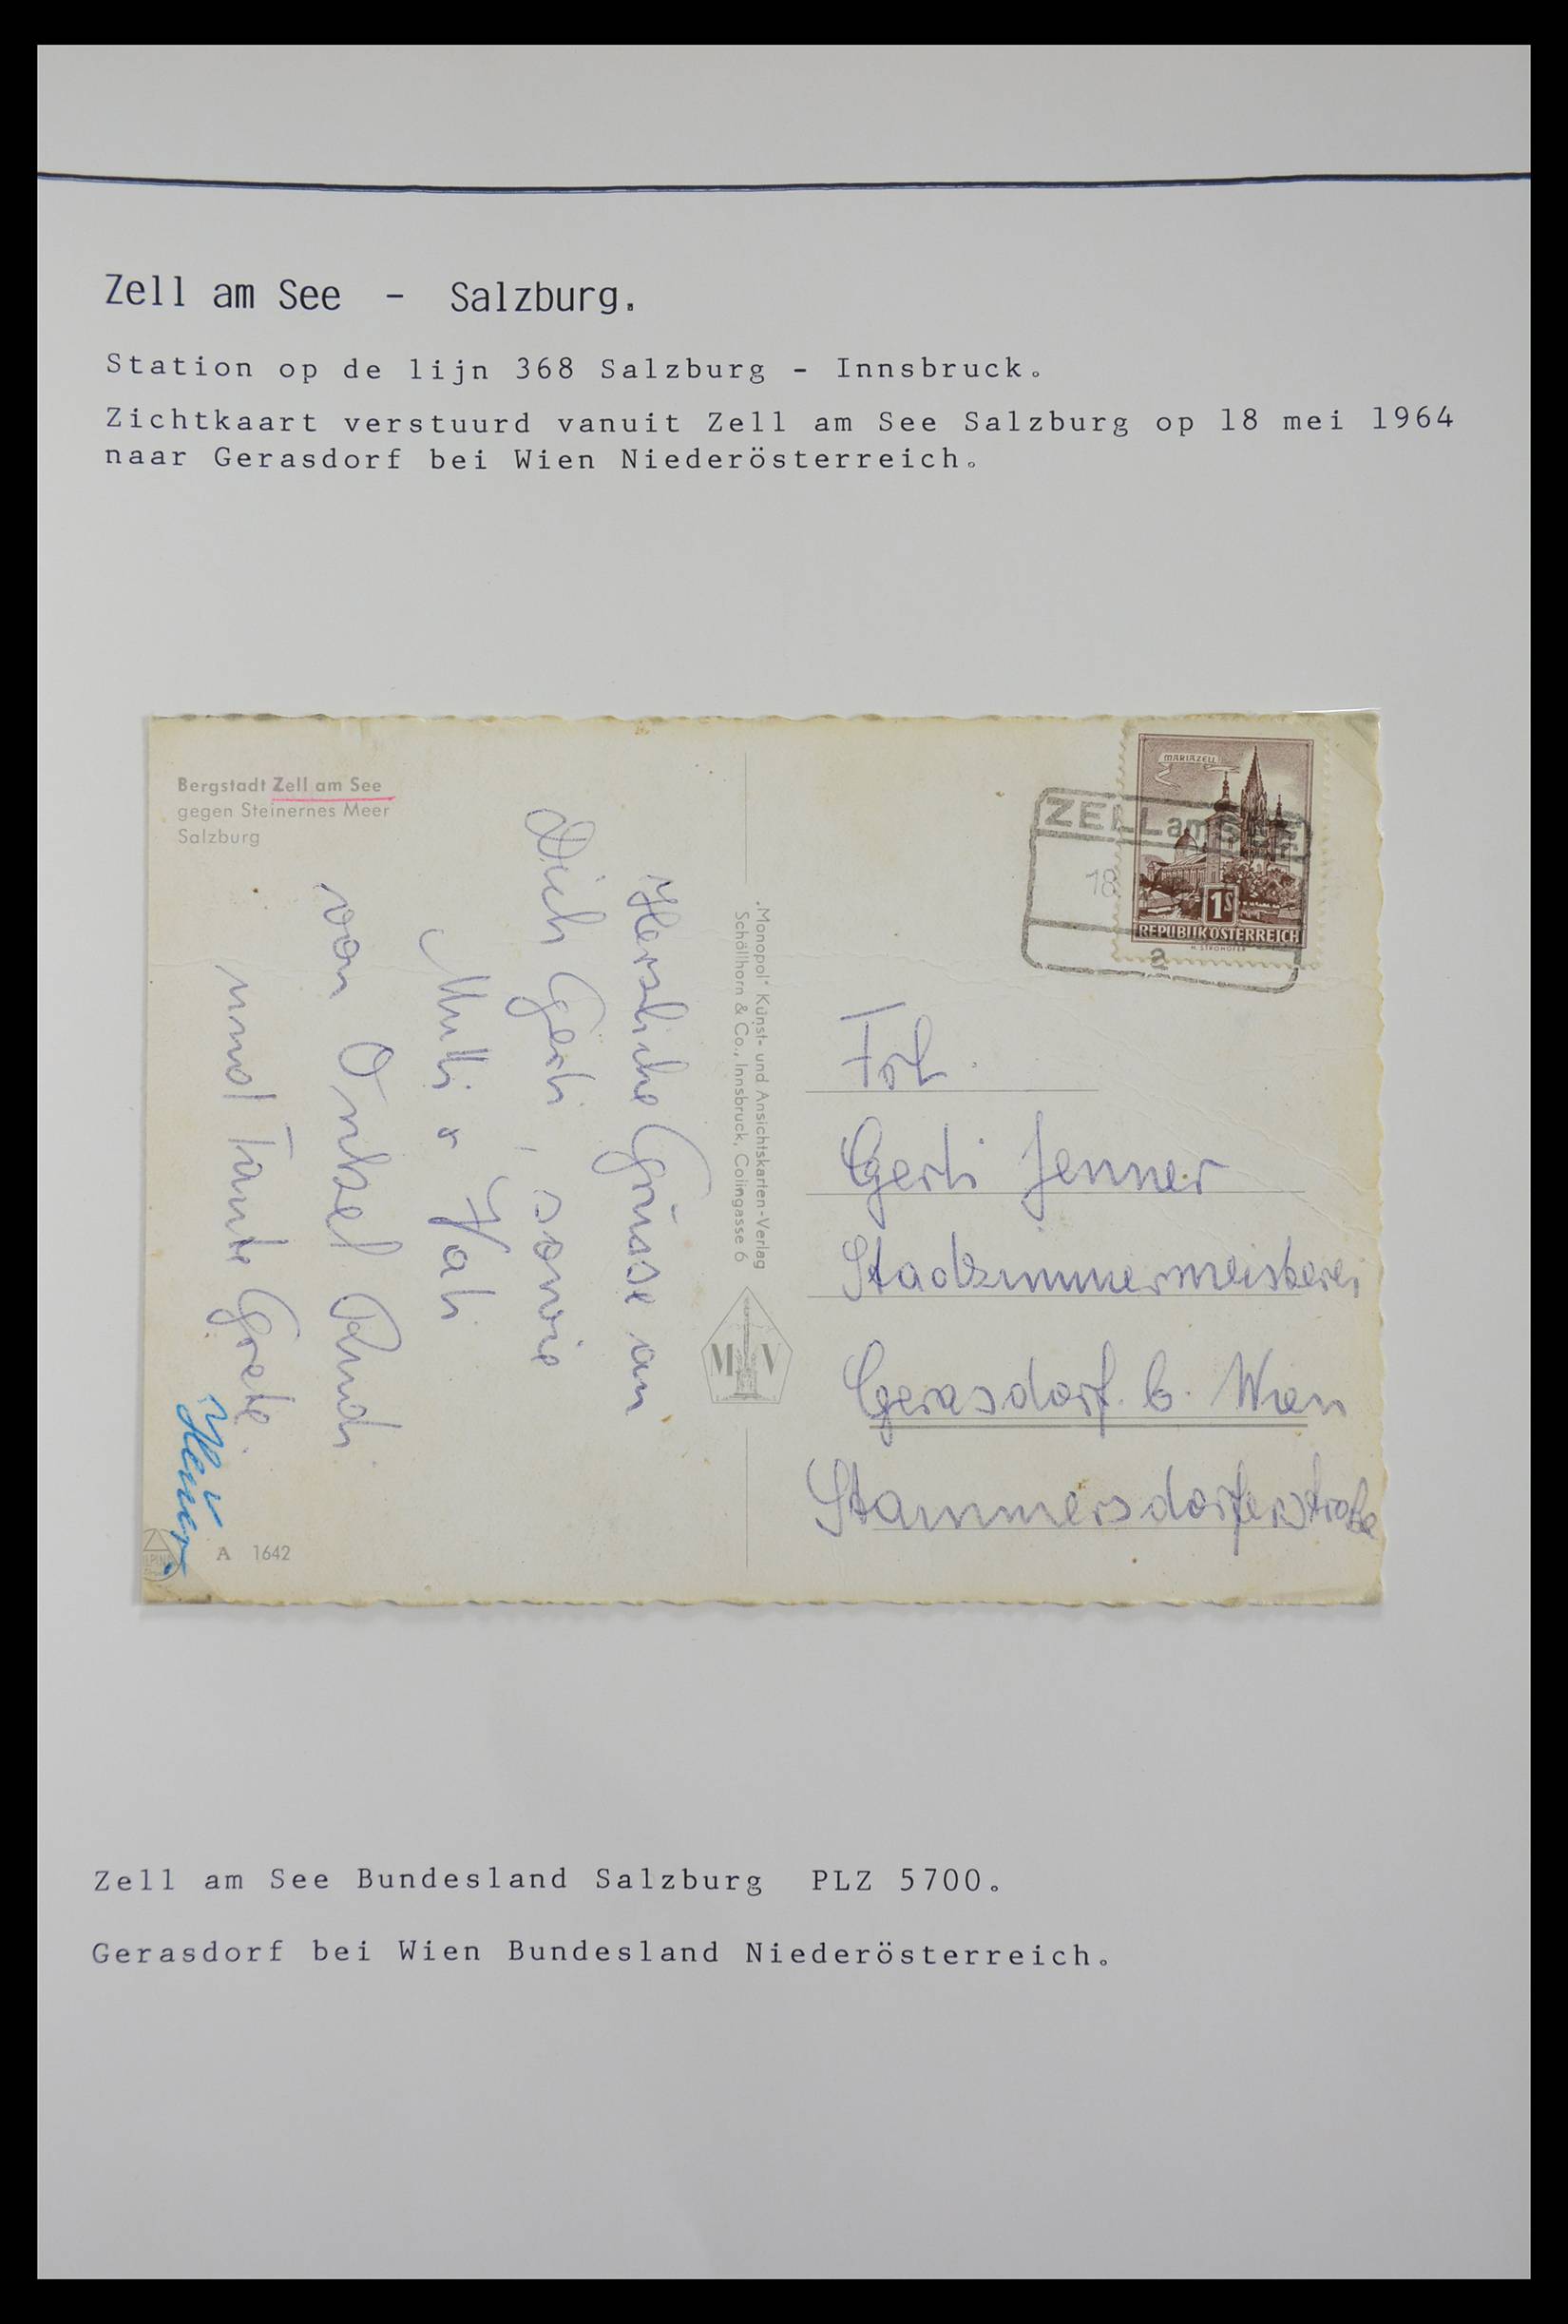 Zell am See - Salzburg.
Station op de lijn 368 Salzburg - Innsbruck.
Zichtkaart verstuurd vanuit Zell am See Salzburg op 18 mei 1964
naar Gerasdorf bei Wien Niederösterreich.
Bergstadt Zell am See
gegen Steinernes Meer
Salzburg
Herzliche Grüsse an
Dich Gerti, sowie
Mutti u.
von Onkel Rudi
und Tante Grete
A 1642
„Monopol" Kunst- und Ansichtskarten-Verlag
Schöllhorn & Co., Innsbruck, Colingasse 6
M V
MARIAZELL
1S
REPUBLIK ÖSTERREICH
H. STROHOFER
ZELL am SEE
18
a
Frl.
Gerti Jenner
Stadtzimmermeisterei
Gerasdorf b. Wien
Stammersdorferstraße
Zell am See Bundesland Salzburg PLZ 5700.
Gerasdorf bei Wien Bundesland Niederösterreich.